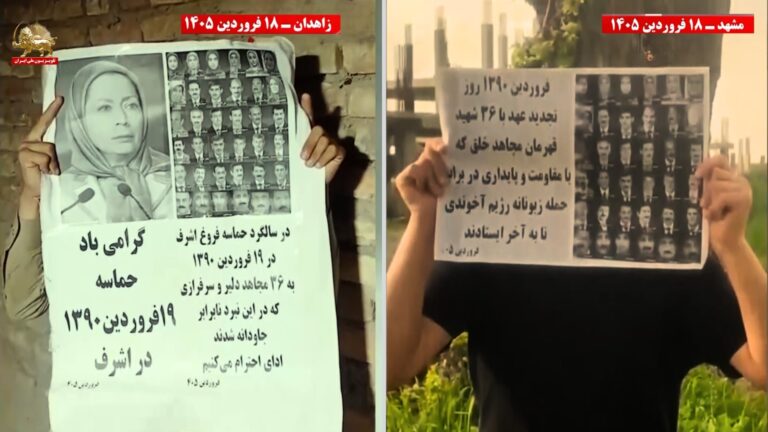 زاهدان ــ ۱۸ فروردین ۱۴۰۵
تلویزیون ملی ایران
گرامی باد
حماسه
۱۹فروردین۱۳۹۰
در اشرف
فروردین ۴۰۵
در سالگرد حماسه فروغ اشرف
در ۱۹ فروردین ۱۳۹۰
به ۳۶ مجاهد دلیر و سرفرازی
که در این نبرد نابرابر
جاودانه شدند
ادای احترام می‌کنیم
فروردین ۴۰۵
مشهد ــ ۱۸ فروردین ۱۴۰۵
فروردین ۱۳۹۰ روز
تجدید عهد با ۳۶ شهید
قهرمان مجاهد خلق که
با مقاومت و پایداری در برابر
حمله زبونانه رژیم آخوندی
تا به آخر ایستادند
فروردین ۴۰۵